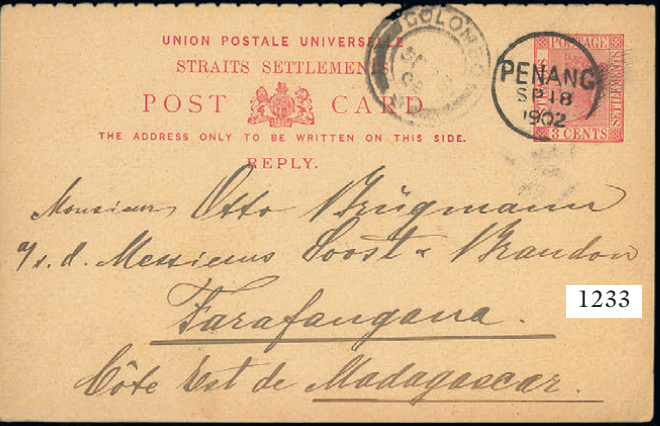 UNION POSTALE UNIVERSELLE
STRAITS SETTLEMENTS
POST CARD
THE ADDRESS ONLY TO BE WRITTEN ON THIS SIDE.
REPLY.
COLOMBO
PENANG
SP 18
1902
POSTAGE
SETTLEMENTS
3 CENTS
Monsieur Otto Brügmann
a/s. d. Messieurs Soost & Brandon
Farafangana.
Côte Est de Madagascar.
1233